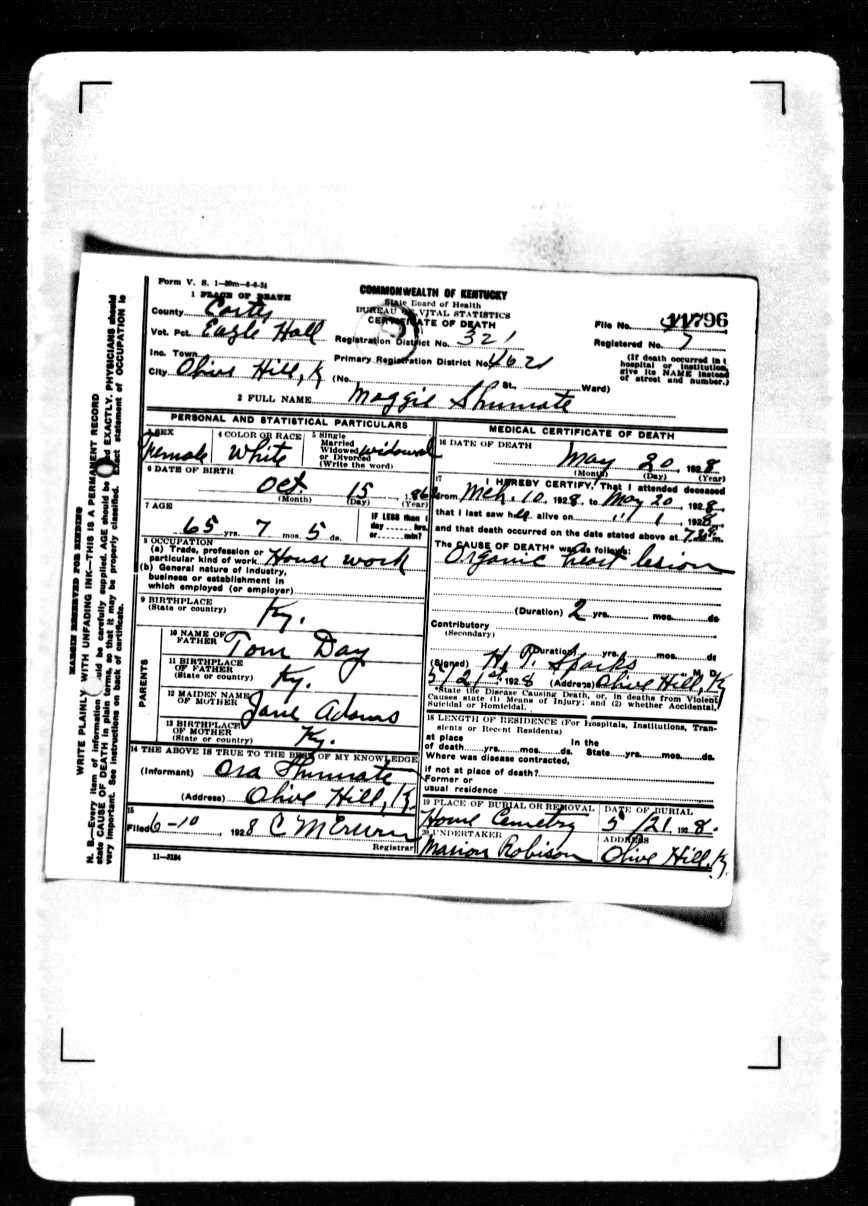 Form V. S. 1-50m-4-6-24
COMMONWEALTH OF KENTUCKY
State Board of Health
BUREAU OF VITAL STATISTICS
CERTIFICATE OF DEATH
1 PLACE OF DEATH
County Carter
Vot. Pct. Eagle Hall
Inc. Town
City Olive Hill, K
Registration District No. 321
Primary Registration District No. 4621
(No. St., Ward)
File No. 11796
Registered No. 7
(If death occurred in a
hospital or institution,
give its NAME instead
of street and number.)
2 FULL NAME Maggie Shumate
PERSONAL AND STATISTICAL PARTICULARS
3 SEX Female
4 COLOR OR RACE White
5 Single
Married
Widowed
or Divorced
(Write the word) widowed
6 DATE OF BIRTH
Oct. 15, 186
(Month) (Day) (Year)
7 AGE
65 yrs. 7 mos. 5 ds.
IF LESS than 1
day hrs.
or min?
8 OCCUPATION
(a) Trade, profession or
particular kind of work House work
(b) General nature of industry,
business or establishment in
which employed (or employer)
9 BIRTHPLACE
(State or country) Ky.
PARENTS
10 NAME OF
FATHER Tom Day
11 BIRTHPLACE
OF FATHER
(State or country) Ky.
12 MAIDEN NAME
OF MOTHER Jane Adams
13 BIRTHPLACE
OF MOTHER
(State or country) Ky.
14 THE ABOVE IS TRUE TO THE BEST OF MY KNOWLEDGE
(Informant) Ora Shumate
(Address) Olive Hill, K.
15
Filed 6-10, 1928 C M Erwin
Registrar
11-3184
MEDICAL CERTIFICATE OF DEATH
16 DATE OF DEATH
May 20, 1928
(Month) (Day) (Year)
17
I HEREBY CERTIFY, That I attended deceased
from Mch. 10, 1928, to May 20, 1928,
that I last saw her alive on " 1, 1928,
and that death occurred on the date stated above at m.
The CAUSE OF DEATH* was as follows:
Organic heart lesion
(Duration) 2 yrs. mos. ds
Contributory
(Secondary)
(Duration) yrs. mos. ds
(Signed) H. T. Sparks M D.
5/21st, 1928 (Address) Olive Hill, Ky
*State the Disease Causing Death, or, in deaths from Violent
Causes state (1) Means of Injury; and (2) whether Accidental,
Suicidal or Homicidal.
18 LENGTH OF RESIDENCE (For Hospitals, Institutions, Tran-
sients or Recent Residents)
At place In the
of death yrs. mos. ds. State yrs. mos. ds.
Where was disease contracted,
if not at place of death?
Former or
usual residence
19 PLACE OF BURIAL OR REMOVAL
Home Cemetry
DATE OF BURIAL
5/21 1928.
20 UNDERTAKER
Marion Robison
ADDRESS
Olive Hill, K.
MARGIN RESERVED FOR BINDING
WRITE PLAINLY WITH UNFADING INK—THIS IS A PERMANENT RECORD
N. B.—Every item of information should be carefully supplied. AGE should be stated EXACTLY. PHYSICIANS should
state CAUSE OF DEATH in plain terms, so that it may be properly classified. Exact statement of OCCUPATION is
very important. See instructions on back of certificate.